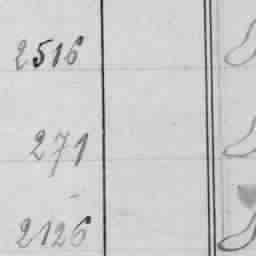 2516
271
2126